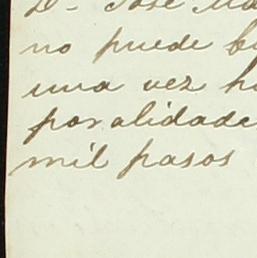 Dn José Ma
no puede
una vez
poralidade
mil pasos